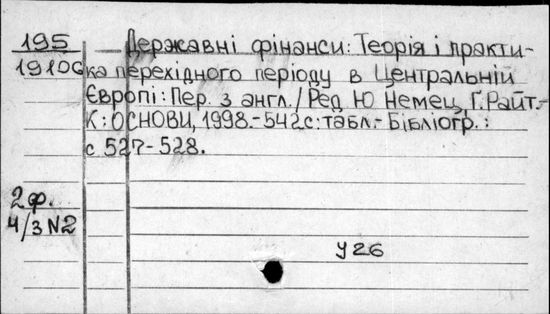 195 — Державні фінанси: Теорія і практи-
19106 ка перехідного періоду в Центральній
Європі: Пер. з англ./ Ред Ю Немец, Г. Райт.-
К: ОСНОВИ, 1998.- 542с: табл.- Бібліогр.:
с 527-528.
2ф.
ч/з N2
У26